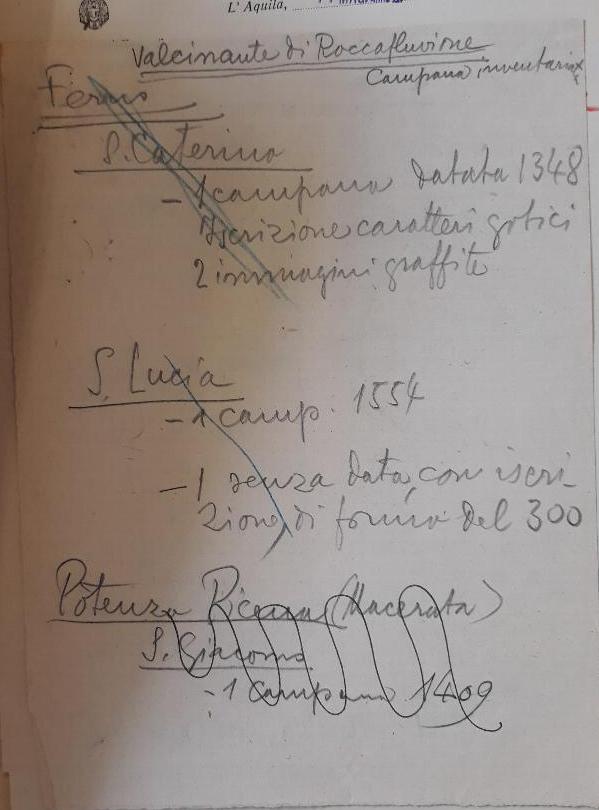 L' Aquila,
Valcinante di Roccafluvione
Campana inventariata
Fermo
S. Caterina
- 1 campana datata 1348
Iscrizione caratteri gotici
2 immagini graffite
S. Lucia
- 1 camp. 1554
- 1 senza data, con iscri
zione, di forma del 300
Potenza Picena (Macerata)
S. Giacomo
- 1 campana 1409